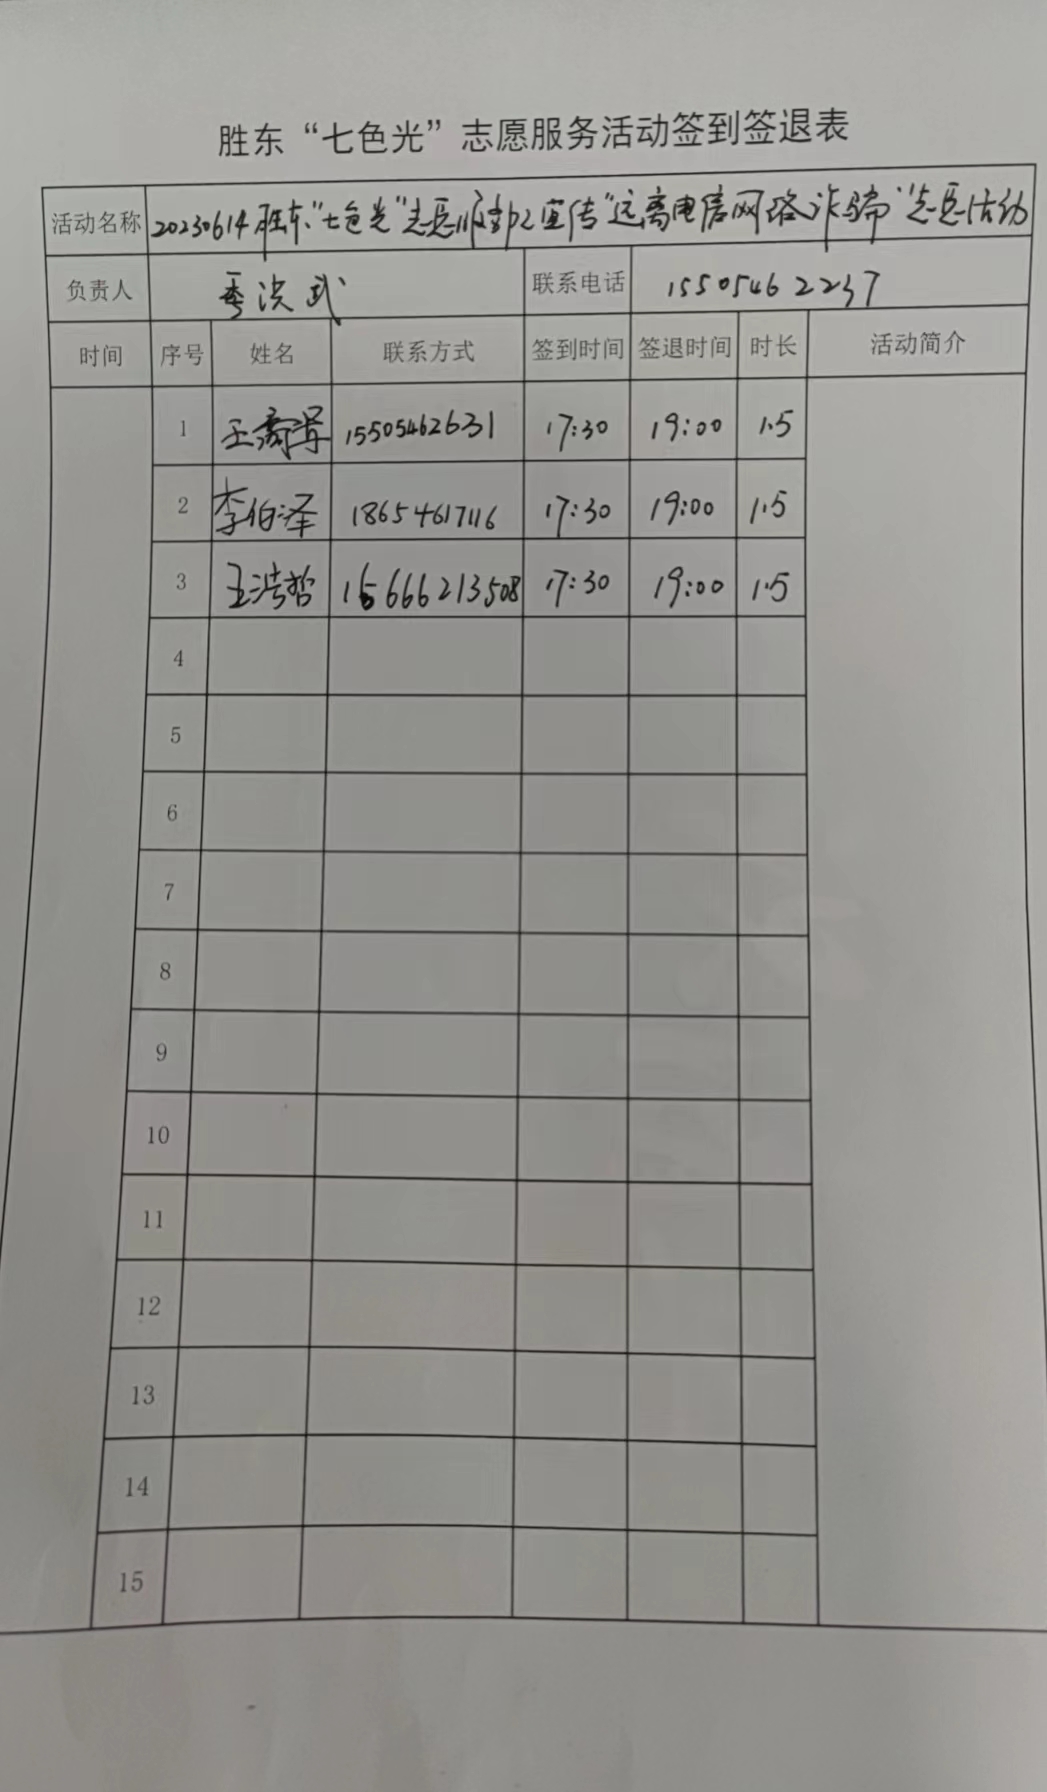 胜东“七色光”志愿服务活动签到签退表
活动名称 20230614胜东“七色光”志愿服务队宣传“远离电信网络诈骗”志愿活动
负责人 季洪武 联系电话 15505462237
时间 序号 姓名 联系方式 签到时间 签退时间 时长 活动简介
1 王 15505462631 17:30 19:00 1.5
2 李伯泽 18654617116 17:30 19:00 1.5
3 王浩哲 15666213508 17:30 19:00 1.5
4
5
6
7
8
9
10
11
12
13
14
15